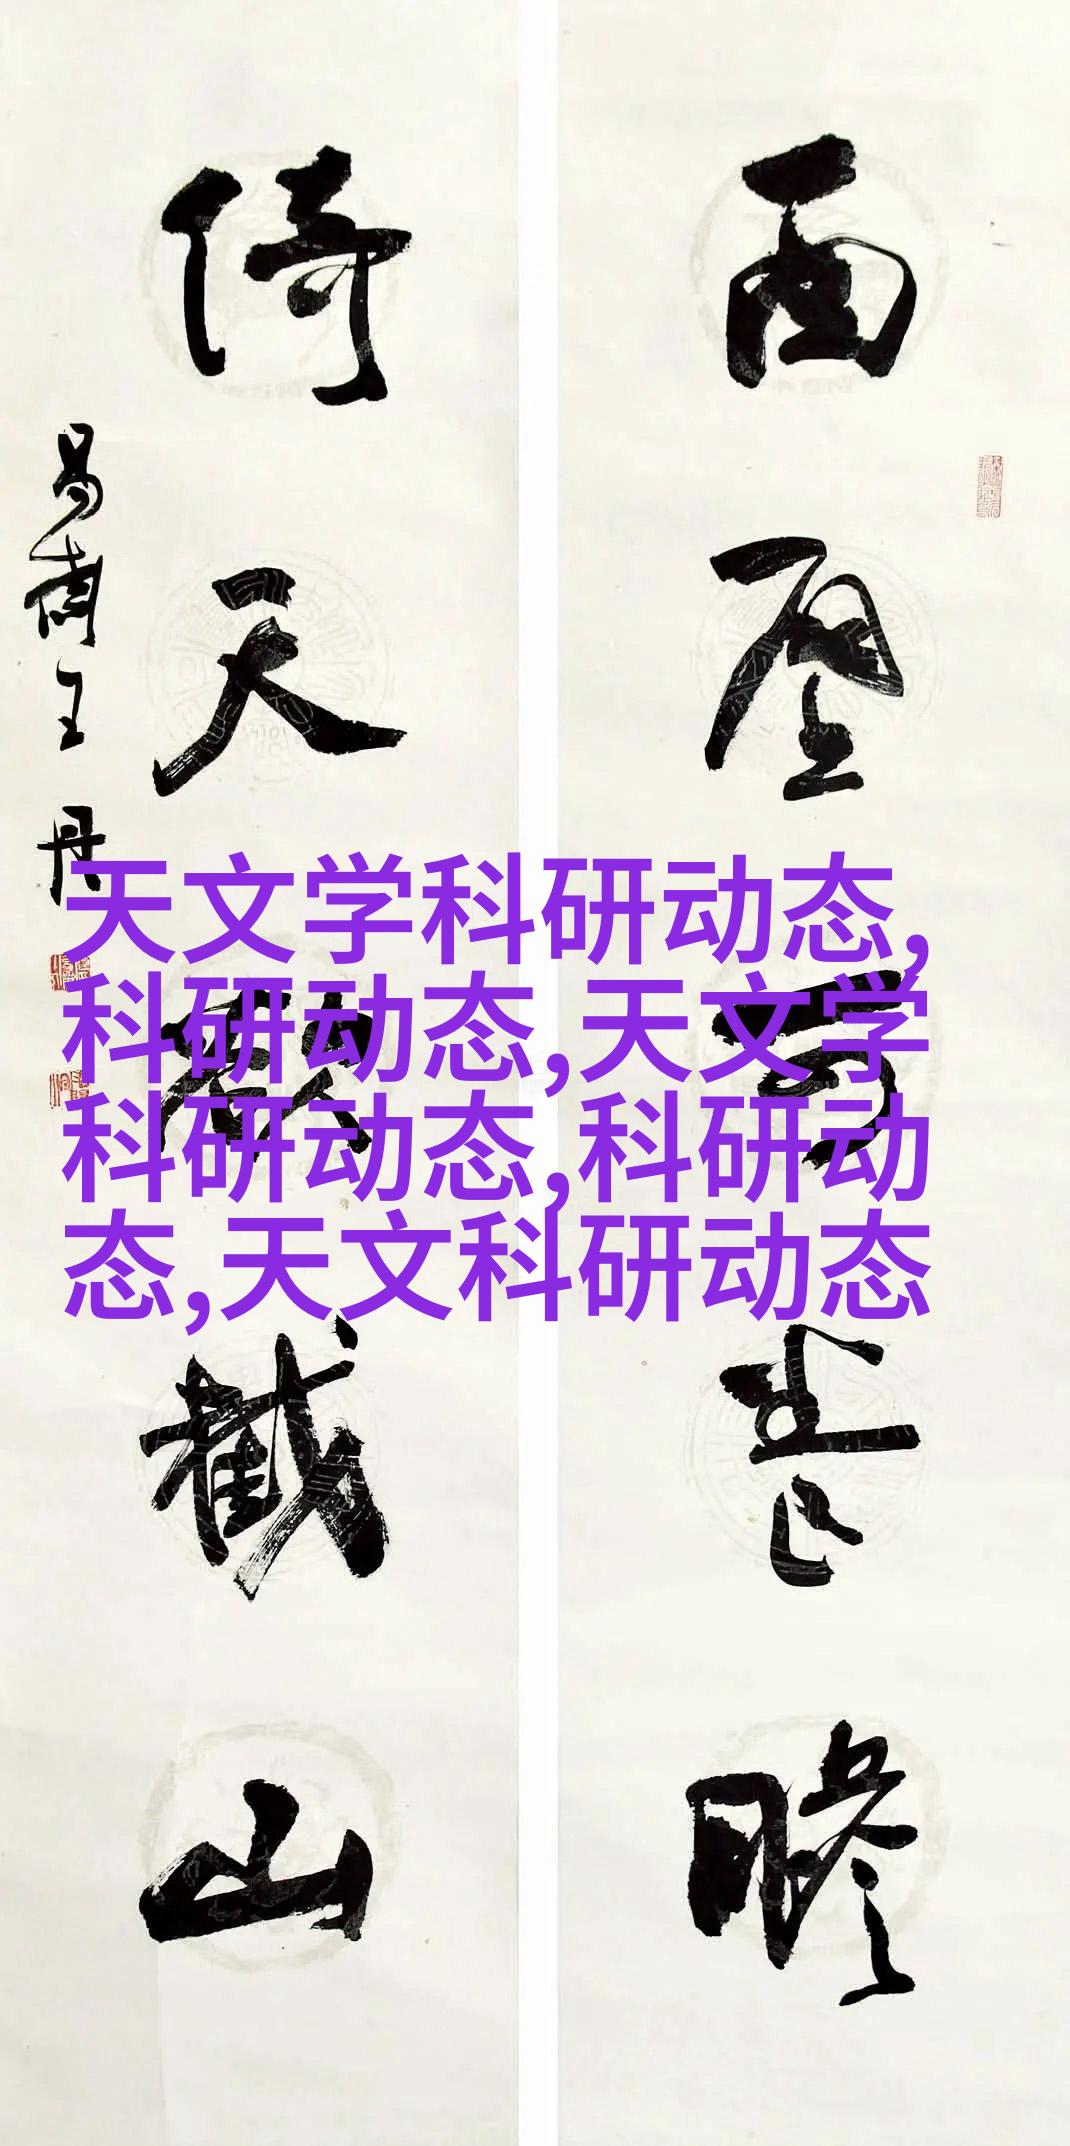 天文学科研动态,
科研动态,天文学
科研动态,科研动
态,天文科研动态
西
壁
可
长
瞻
倚
天
截
山
王
丹